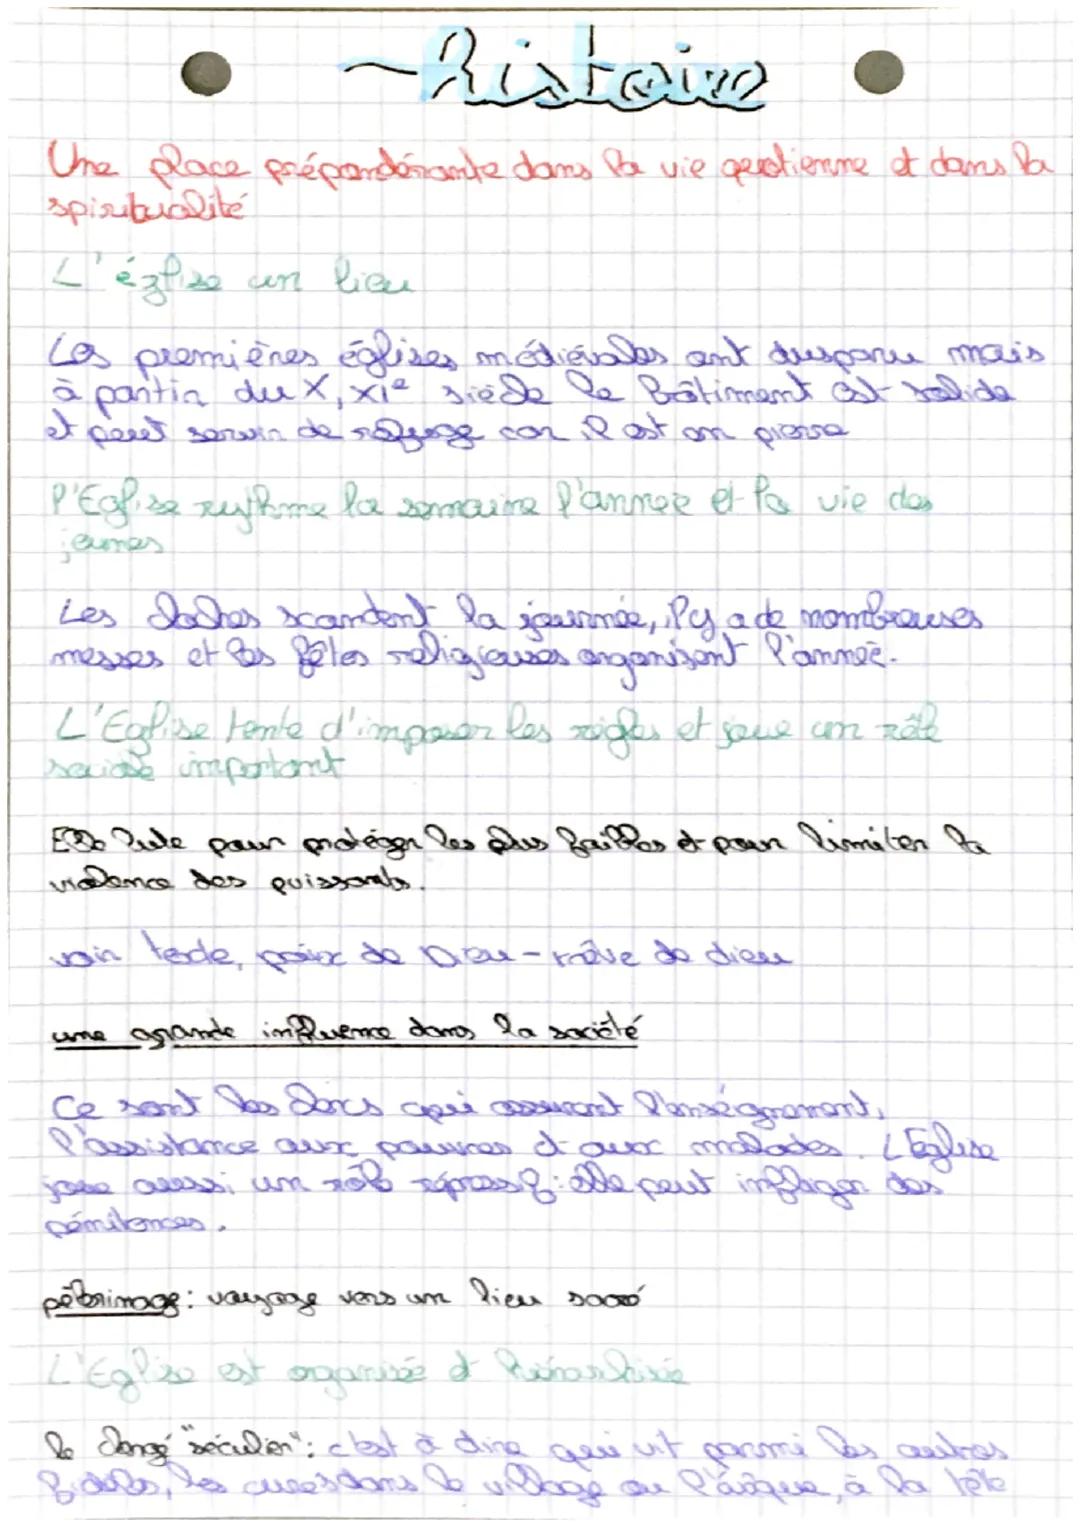 ~histoire
Une place prépondérante dans la vie quotienne et dans la
spiritualité
L'église un lieu
Les premières églises médiévales ont disparu mais
à partir du X, XIe siècle le bâtiment est solide
et peut servir de refuge car il est en pierre
l'Eglise rythme la semaine l'année et la vie des
jeunes
Les cloches scandent la journée, il y a de nombreuses
messes et les fêtes religieuses organisent l'année.
L'Eglise tente d'imposer les règles et joue un rôle
sociale important
Elle lute pour protéger les plus faibles et pour limiter la
violence des puissants.
voir texte, paix de Dieu - trêve de dieu
une grande influence dans la société
Ce sont les clercs qui assurent l'enseignement,
l'assistance aux pauvres et aux malades. L'Eglise
joue aussi un rôle répressif: elle peut infliger des
pénitences.
pèlerinage: voyage vers un lieu sacré
L'Eglise est organisée et hiérarchisée
le clergé "séculier": c'est à dire qui vit parmi les autres
fidèles, les cures dans le village ou l'évêque, à la tête